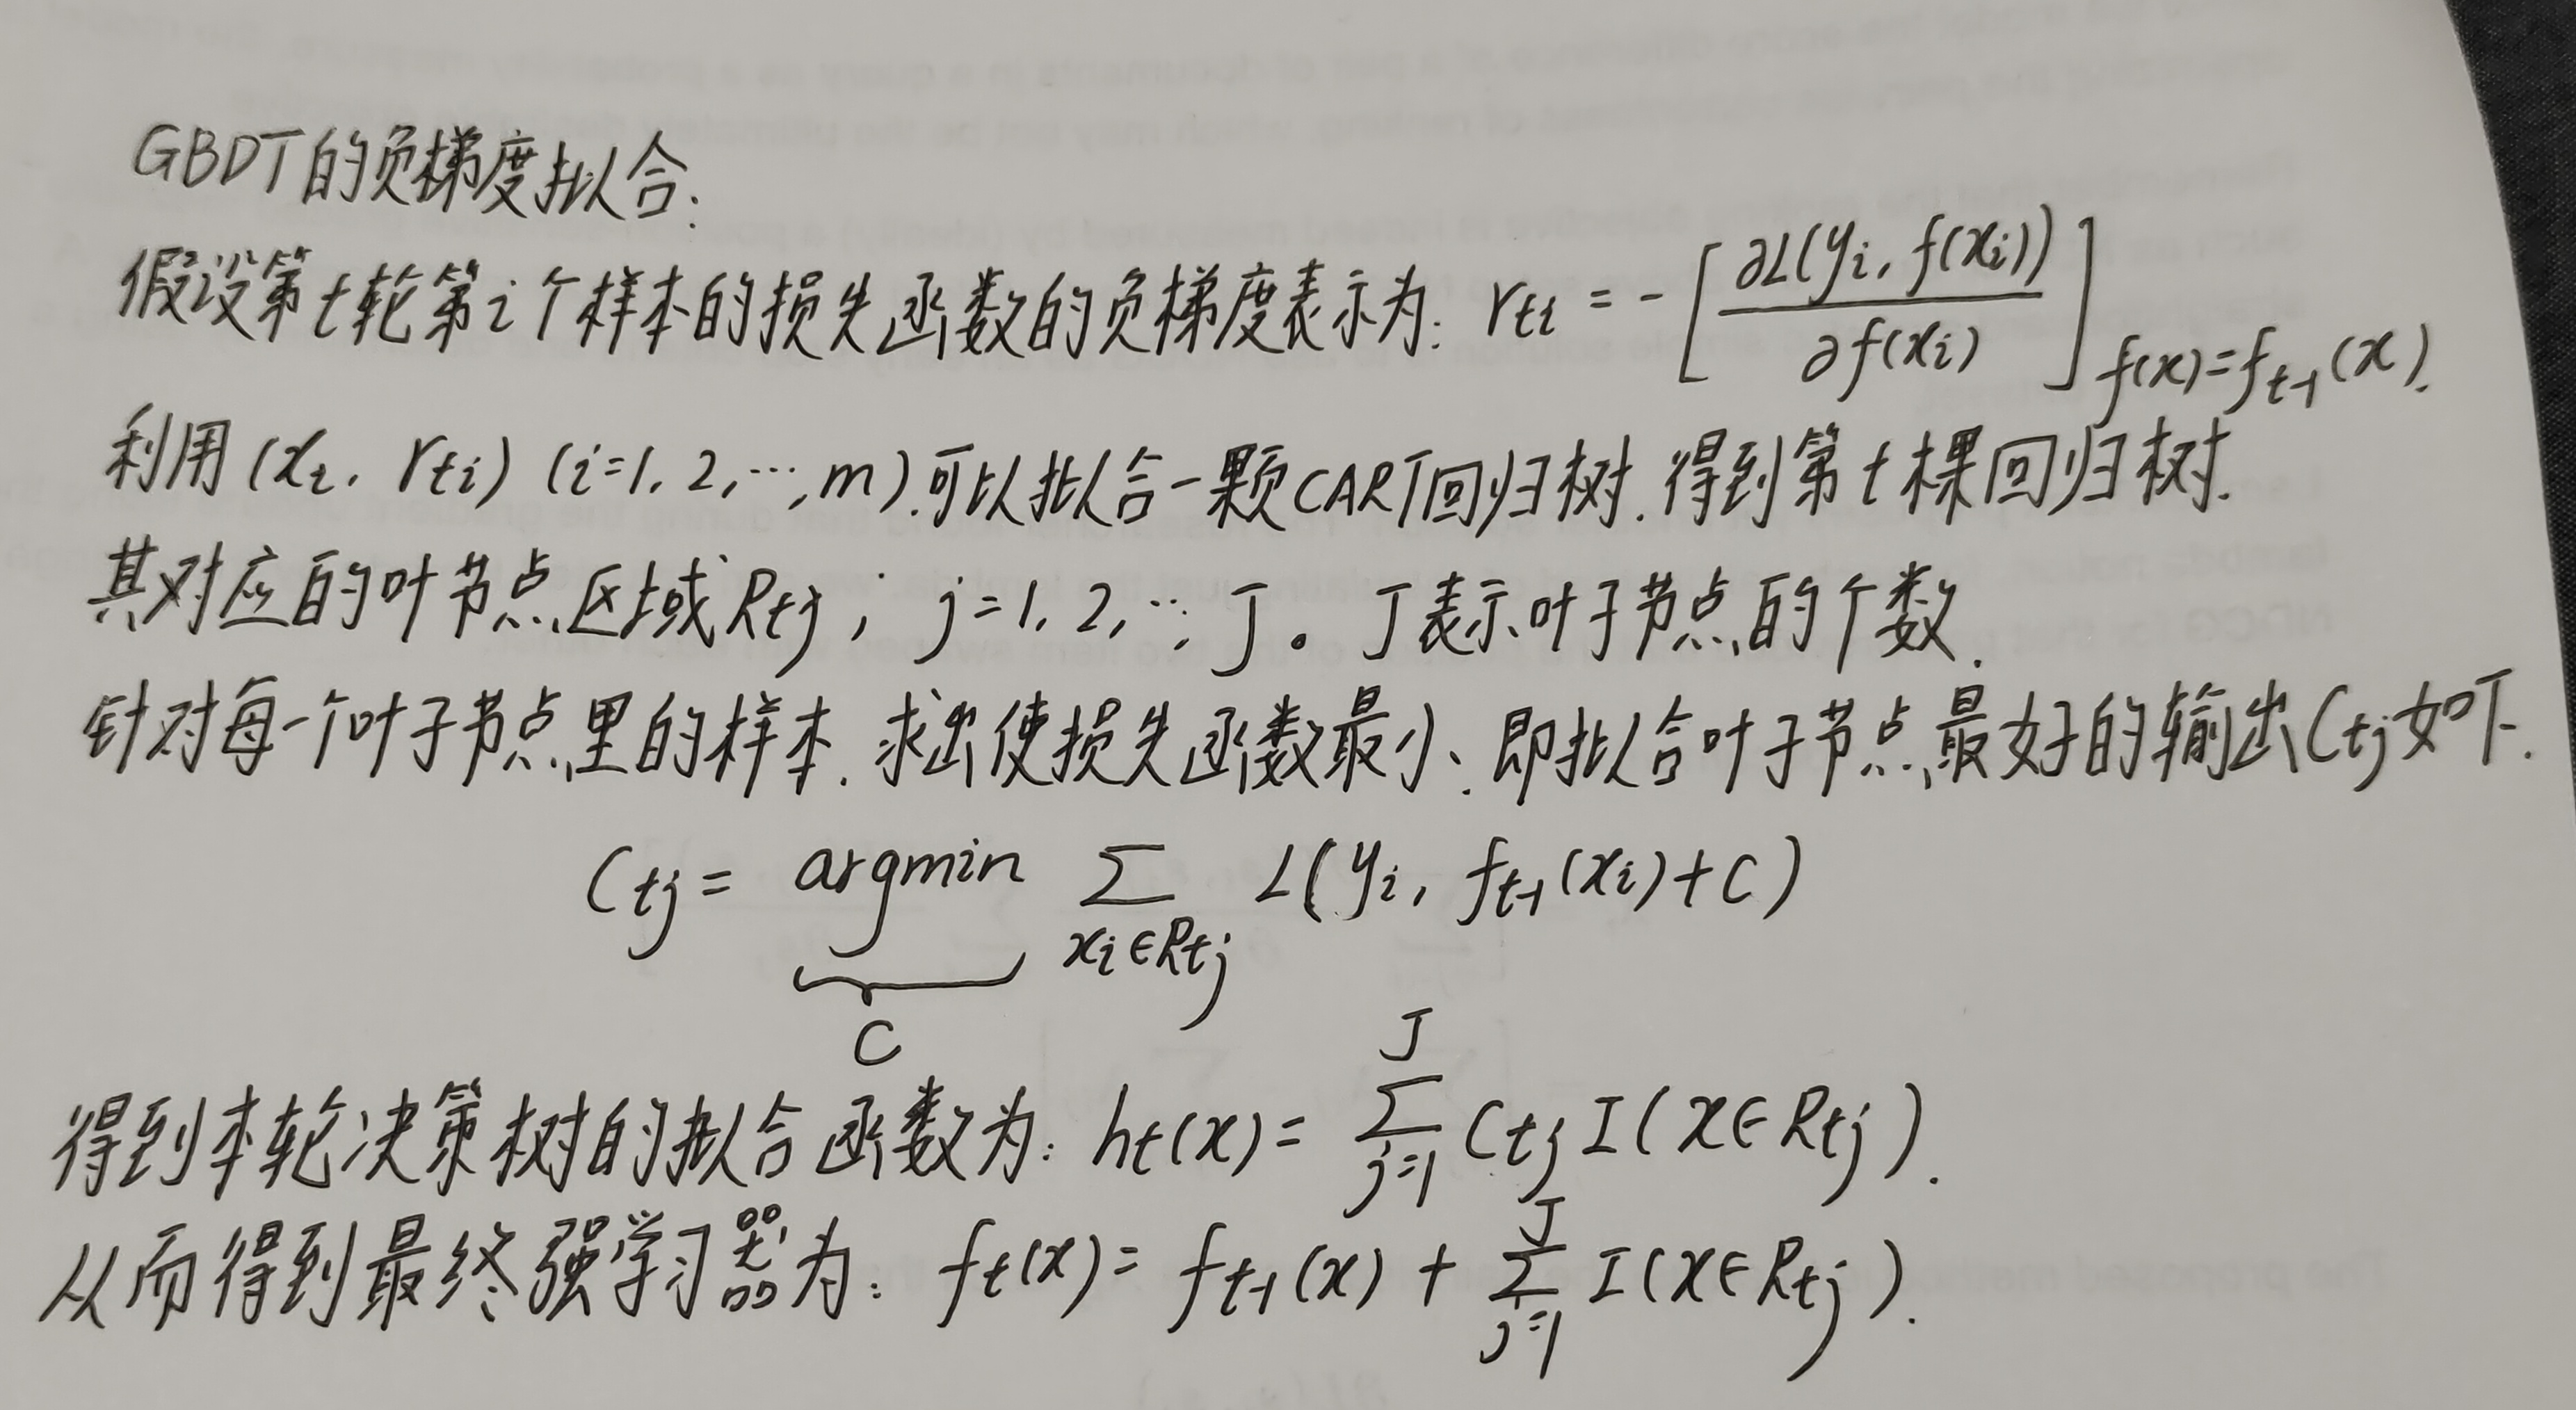 GBDT的负梯度拟合:
假设第t轮第i个样本的损失函数的负梯度表示为: r_{ti} = -\left[\frac{∂L(y_i, f(x_i))}{∂f(x_i)}\right]_{f(x)=f_{t-1}(x)}.
利用(x_i, r_{ti}) (i=1, 2, ⋯, m).可以拟合一颗CART回归树.得到第t棵回归树.
其对应的叶节点区域R_{tj}, j=1, 2, ⋯, J。J表示叶子节点的个数.
针对每一个叶子节点里的样本.求出使损失函数最小、即拟合叶子节点最好的输出C_{tj}如下.
C_{tj} = \underbrace{argmin}_{C} \sum_{x_i∈R_{tj}} L(y_i, f_{t-1}(x_i)+C)
得到本轮决策树的拟合函数为: h_t(x) = \sum_{j=1}^{J} C_{tj} I(x∈R_{tj}).
从而得到最终强学习器为: f_t(x) = f_{t-1}(x) + \sum_{j=1}^{J} I(x∈R_{tj}).